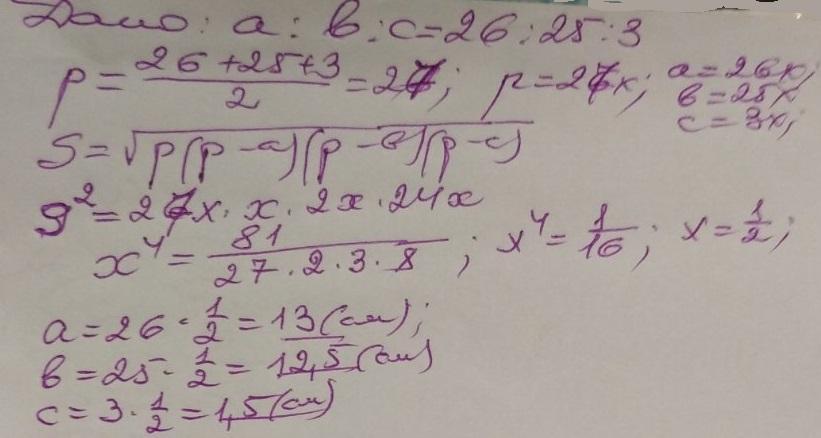 Дано: a : в : c = 26 : 25 : 3
p = (26 + 25 + 3)/2 = 27; p = 27x; a = 26x
в = 25x
c = 3x;
S = √p(p-a)(p-в)(p-c)
9² = 27x · x · 2x · 24x
x⁴ = 81/(27 · 2 · 3 · 8); x⁴ = 1/16; x = 1/2;
a = 26 · 1/2 = 13 (см);
в = 25 · 1/2 = 12,5 (см)
c = 3 · 1/2 = 1,5 (см)